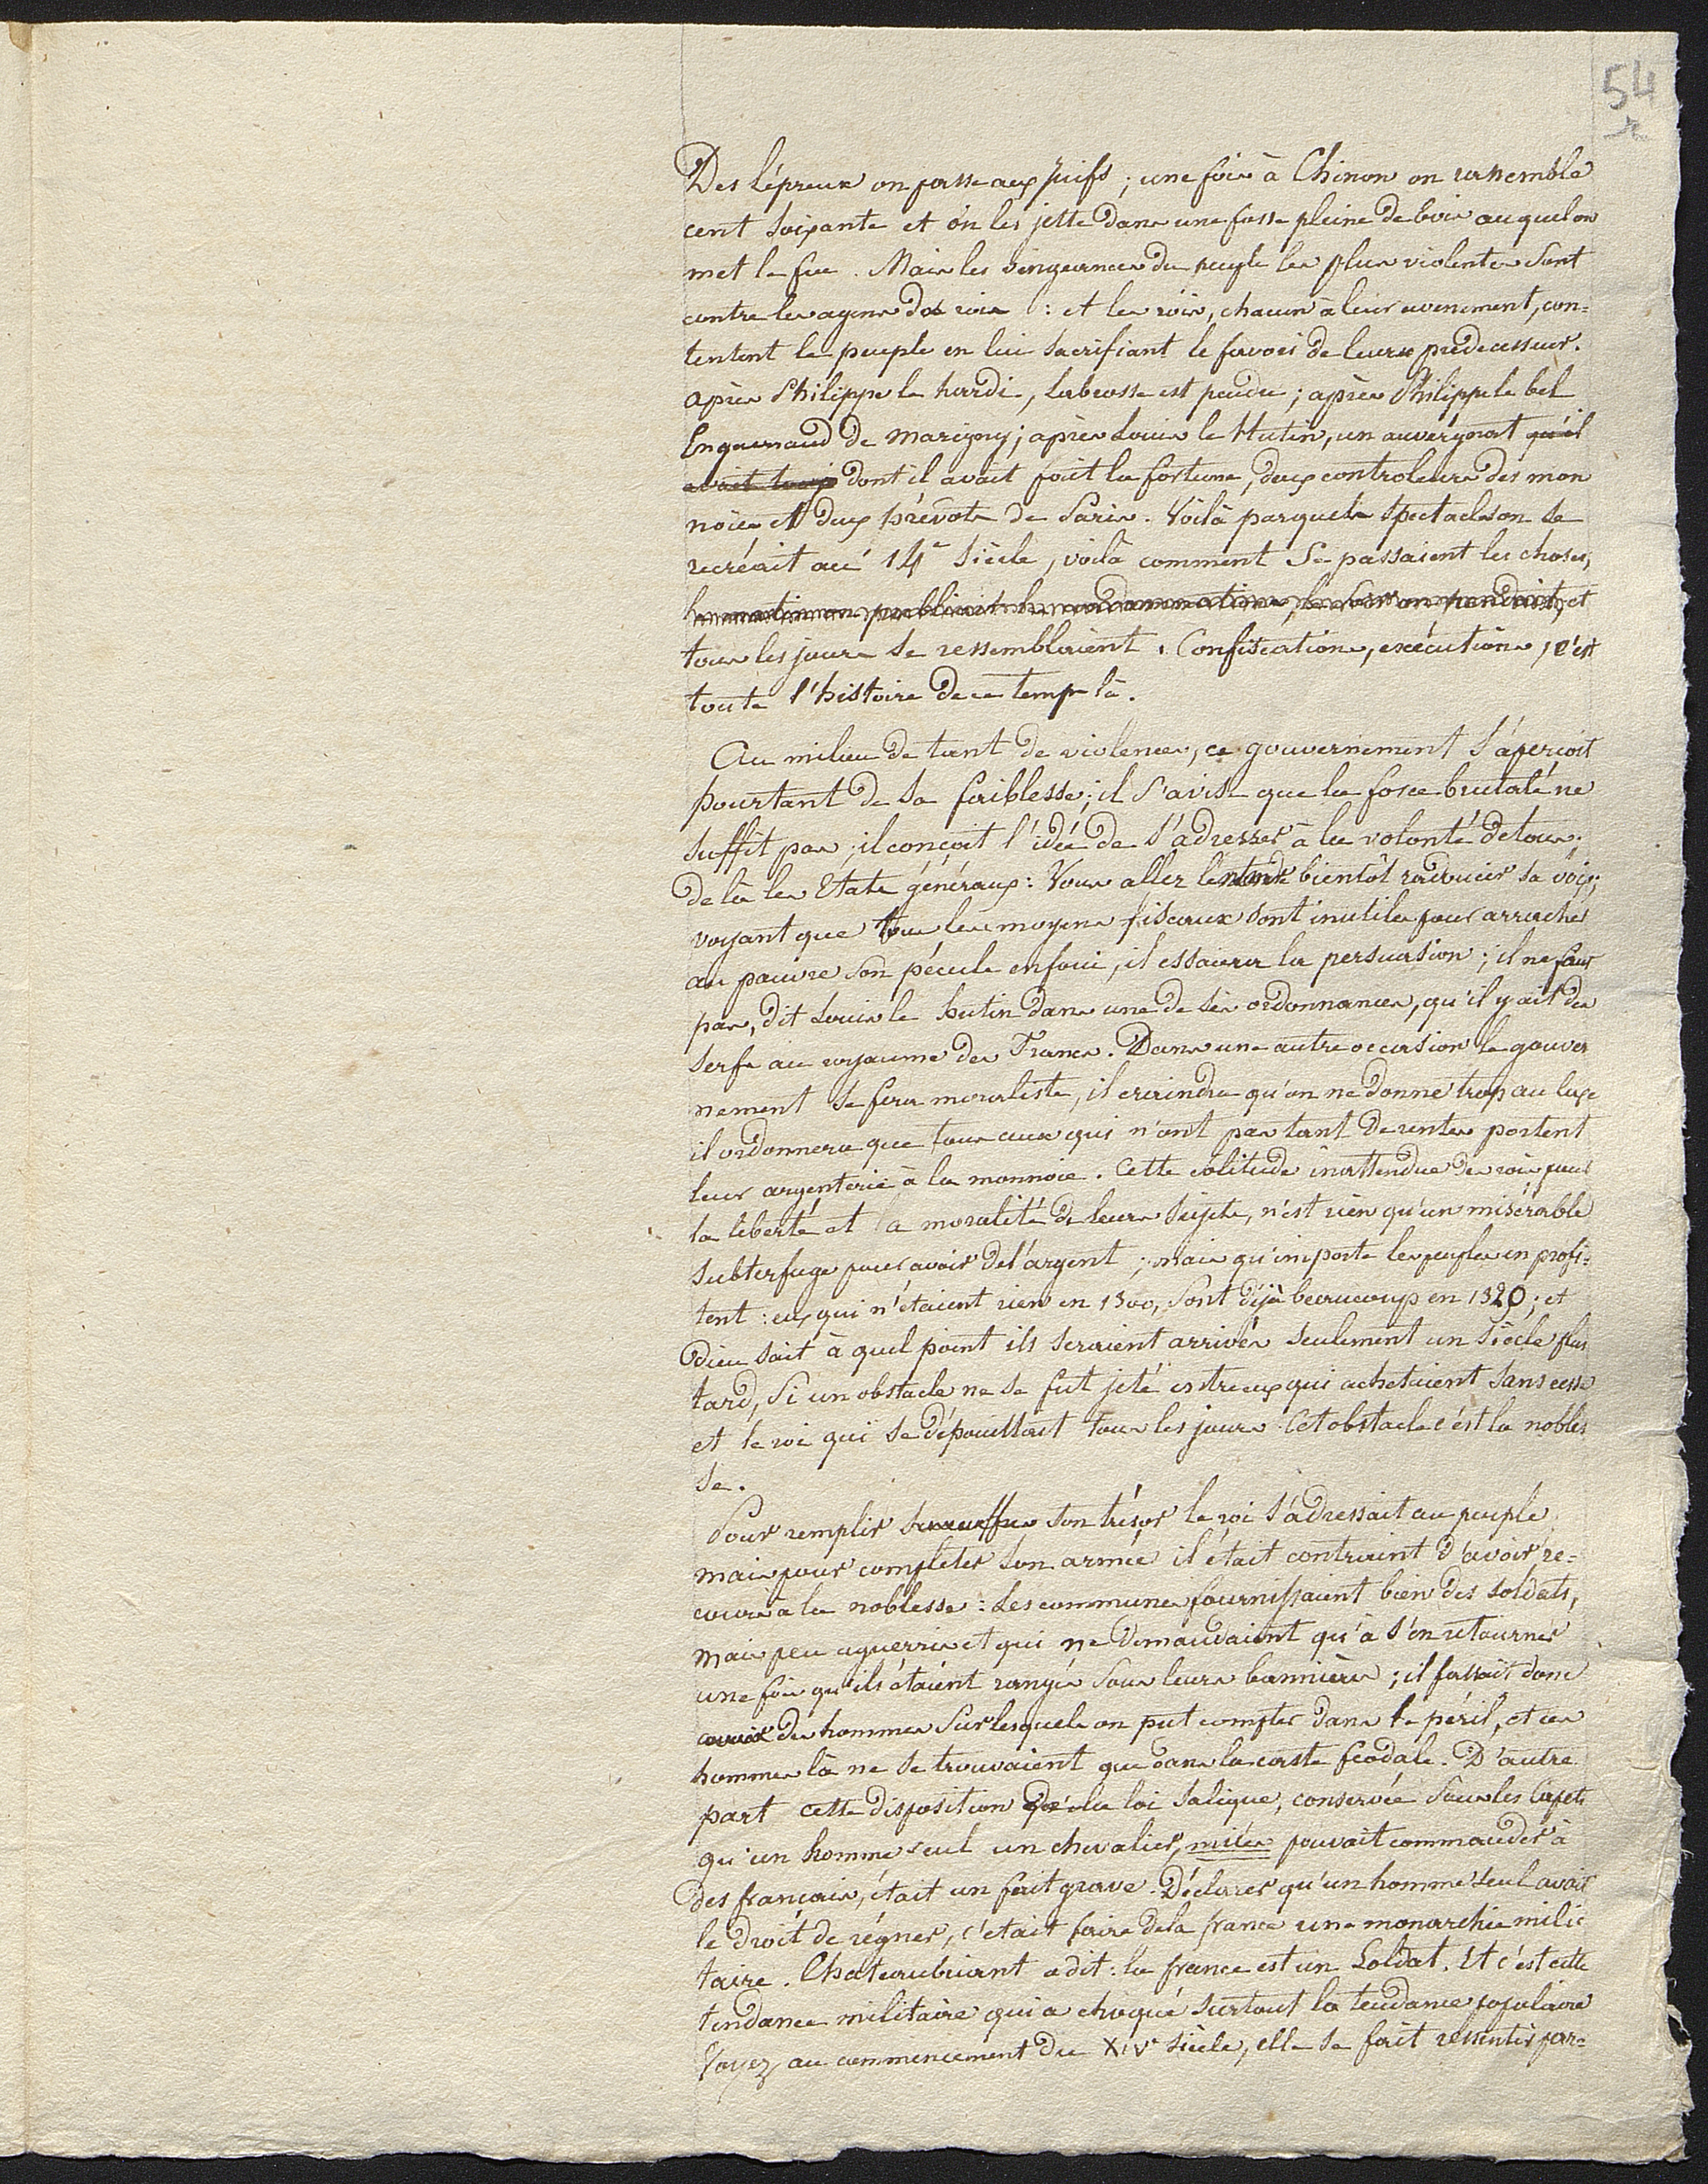 54
r
Des lépreux on passe aux juifs ; une fois à Chinon on rassemble
cent soixante et on les jette dans une fosse pleine de bois auquel on
met le feu. Mais les vengeances du peuple les plus violentes sont
contre les agens des rois : et les rois, chacun à leur avenement, con=
tentent le peuple en lui sacrifiant le favori de leurs prédecesseur.
après Philippe le hardi, Labrosse est pendu ; après Philippe le bel
Enguerraud de Marigny ; après Louis le Hutin, un auvergnat qu'il
avait dont il avait fait la fortune, deux controleurs des mon
noies et deux prévots de Paris. Voilà par quels spectacles on se
recréait au 14e siècle, voilà comment se passaient les choses,
le matin on publiait la condamnation, le soir on pendait, et
tous les jours se ressemblaient. Confiscations, exécutions, c'est
toute l'histoire de ce temps là.
Au milieu de tant de violences, ce gouvernement s'aperçoit
pourtant de sa faiblesse ; il s'avise que la force brutale ne
suffit pas ; il conçoit l'idée de s'adresser à la volonté de tous,
de là les Etats généraux : Vous allez l'entendre bientôt radoucir sa voix,
voyant que tous les moyens fiscaux sont inutiles pour arracher
au pauvre son pécule enfoui, il essaiera la persuasion ; il ne faut
pas, dit Louis le hutin dans une de ses ordonnances, qu'il y ait des
serfs au royaume des Francs. Dans une autre occasion le gouver
nement se fera moraliste, il craindra qu'on ne donne trop au luxe
il ordonnera que tous ceux qui n'ont pas tant de rentes portent
leur argenterie à la monnoie. Cette solitude inattendue des rois pour
la liberté et la moralité de leurs sujets, n'est rien qu'un misérable
subterfuge pour avoir de l'argent ; mais qu'importe les peuples en profi=
tent : eux qui n'étaient rien en 1300, sont déjà beaucoup en 1320 ; et
dieu sait à quel point ils seraient arrivés seulement un siècle plus
tard, si un obstacle ne se fut jeté entre eux qui achetaient sans cesse
et le roi qui se dépouillait tous les jours. Cet obstacle c'est la nobles
se.
Pour remplir ses coffres son trésor le roi s'adressait au peuple,
mais pour completer son armée il était contraint d'avoir re=
cours à la noblesse : Les communes fournissaient bien des soldats,
mais peu aguerris et qui ne demandaient qu'à s'en retourner
une fois qu'ils étaient rangés sous leurs bannières ; il fallait donc
avoir des hommes sur lesquels on put compter dans le péril, et ces
hommes là ne se trouvaient que dans la caste féodale. D'autre
part cette disposition de la loi salique, conservée sous les Capets
qu'un homme seul un chevalier, miles pouvait commander à
des français, était un fait grave. Déclarer qu'un homme seul avait
le droit de régner, c'était faire de la france une monarchie mili=
taire. Chateaubriant a dit : la france est un Soldat. Et c'est cette
tendance militaire qui a choqué surtout la tendance populaire
Voyez au commencement du XIVe siècle, elle se fait ressentir par=